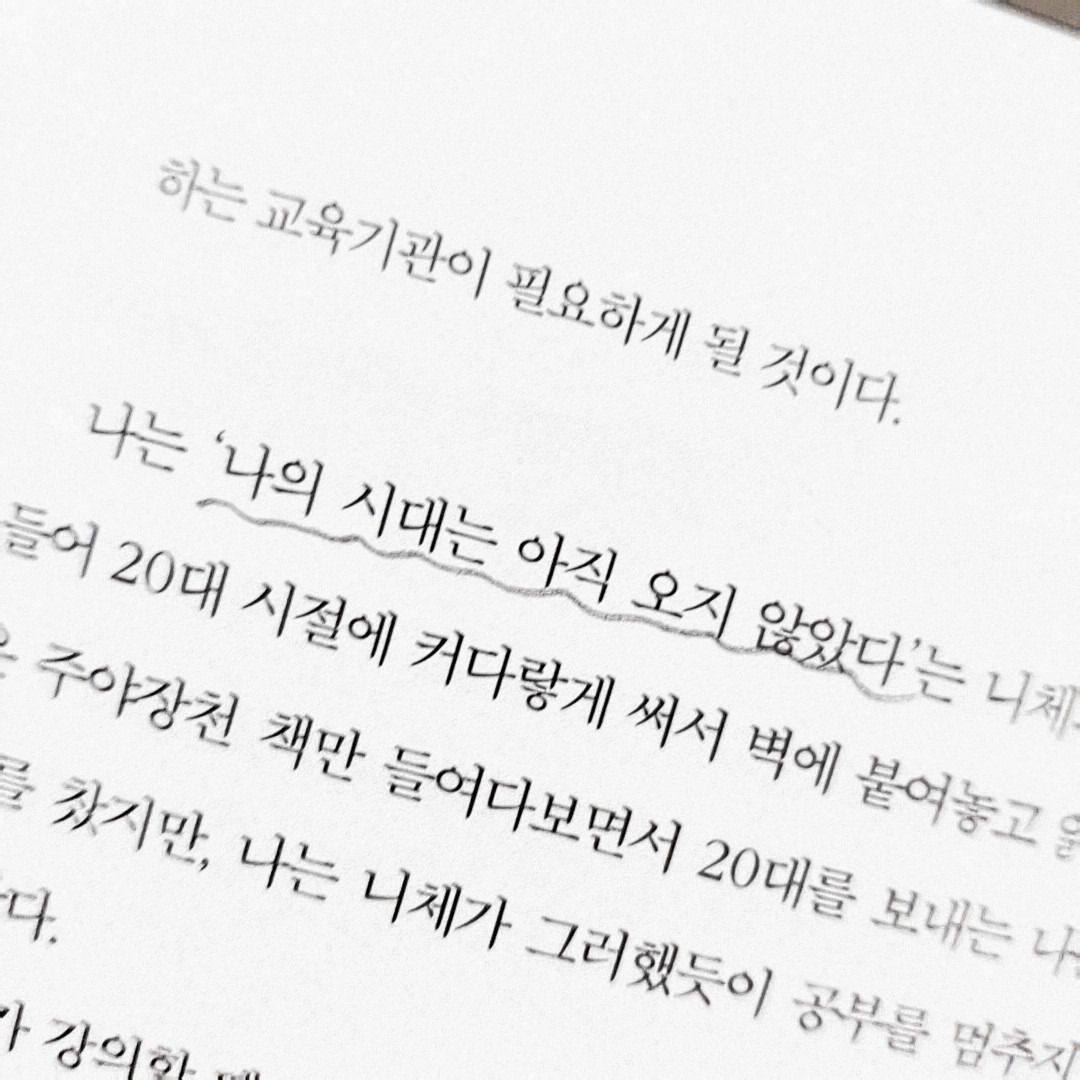 하는 교육기관이 필요하게 될 것이다.
나는 ‘나의 시대는 아직 오지 않았다’는 니체
들어 20대 시절에 커다랗게 써서 벽에 붙여놓고
주야장천 책만 들여다보면서 20대를 보내는
를 찼지만, 나는 니체가 그러했듯이 공부를 멈추지
다.
강의할 때